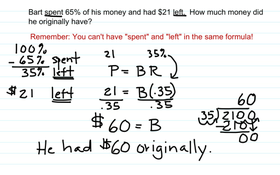 Bart spent 65% of his money and had $21 left. How much money did
he originally have?
Remember: You can't have "spent" and "left" in the same formula!
100%
- 65% spent
35% left
$21 left
21 35%
P = BR
21 = B(.35)
.35 .35
$60 = B
He had $60 originally.
60
.35 2100
-210
00